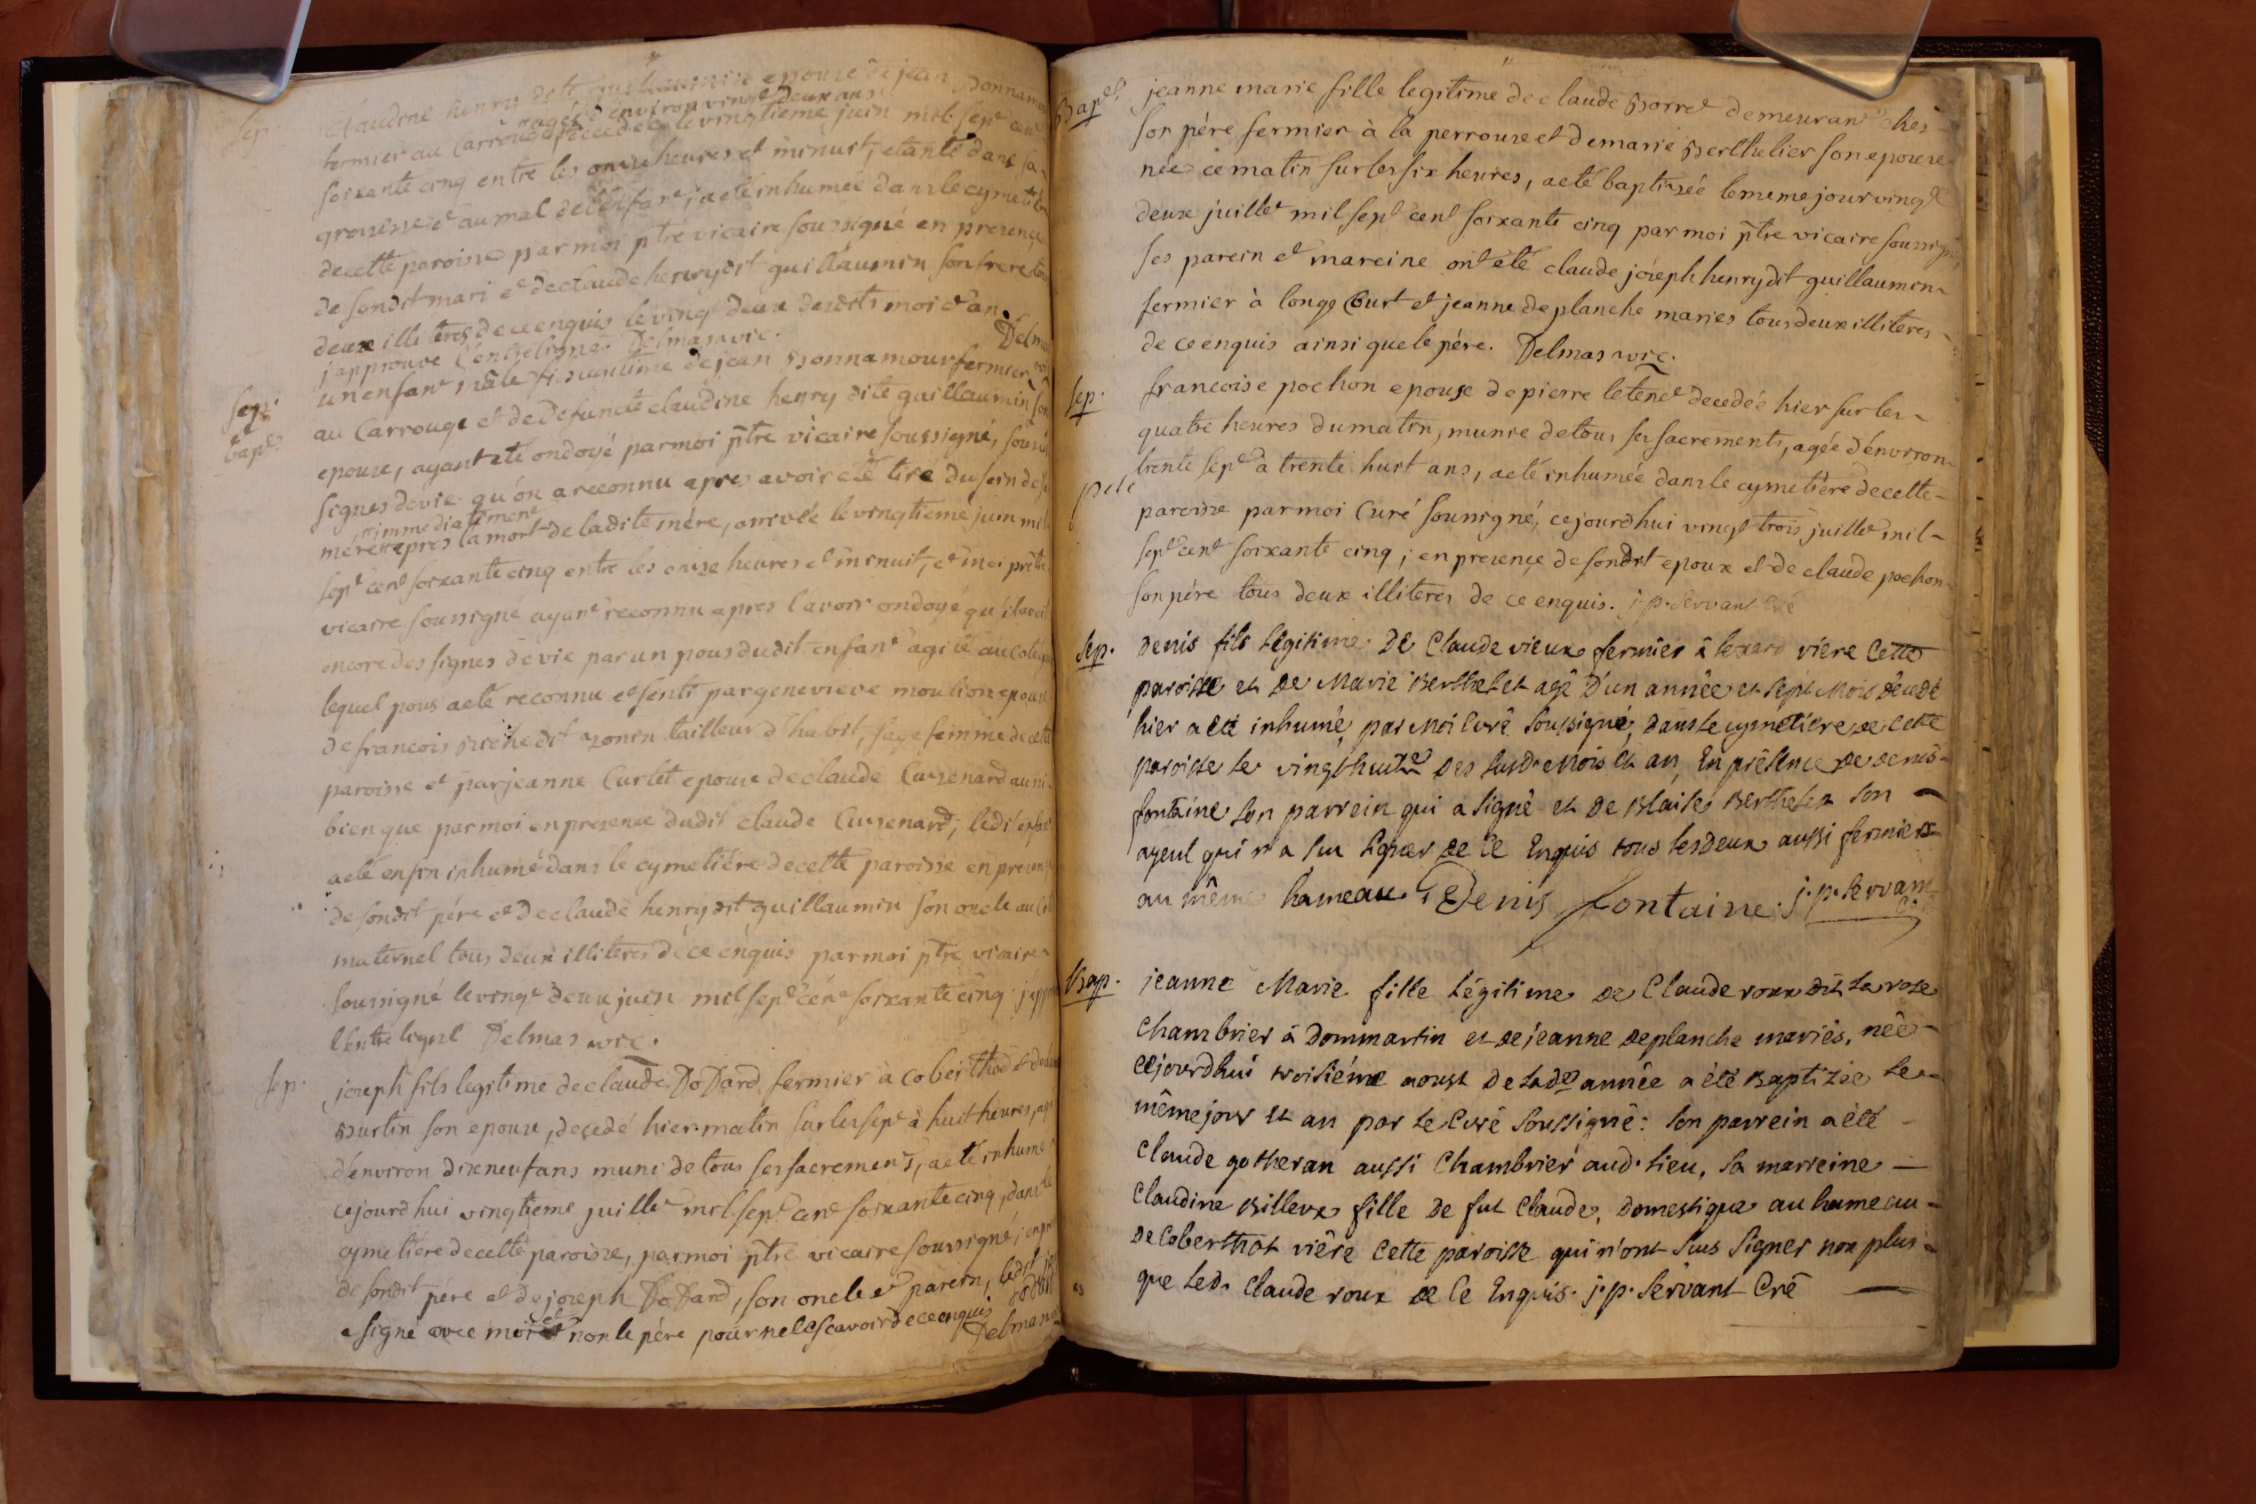 Sep.
Claudine henry dite guillaumin epouse de jean Bonnamour
agée d'environ vingt deux ans
fermier au Carrouge decedée le vingtieme juin mil sept cent
soixante cinq entre les onze heures et minuit, etante dans sa
grossesse et au mal de l'enfant, a eté inhumée dans le cymetiere
de cette paroisse par moi ptre vicaire soussigné en presence
de sondit mari et de claude henry dit guillaumin son frere tous
deux illiteres de ce enquis le vingt deux desdits moi et an.
j'approuve l'entreligne. Delmas vic.
Sep.
et
bapt.
un enfant mâle fils legitime de jean Bonnamour fermier
au Carrouge et de defuncte claudine henry dite guillaumin son
epouse, ayant eté ondoyé par moi ptre vicaire soussigné, sous les
signes de vie qu'on a reconnu apres avoir eté tiré du sein de sa
immediatement
mere apres la mort de ladite mére, arrivée le vingtieme juin mil
sept cent soixante cinq entre les onze heures et minuit, et moi prêtre
vicaire soussigné ayant reconnu apres l'avoir ondoyé qu'il avoit
encore des signes de vie par un pous dudit enfant agité au col
lequel pous a eté reconnu et senti par genevieve moulion epouse
de francois Riche dit azonin tailleur d'habit, sage femme de cette
paroisse et par jeanne Curlet epouse de claude Cusenard aussi
bien que par moi en presence dudit claude Cusenard, ledit enfant
a eté enfin inhumé dans le cymetiére de cette paroisse en presence
de sondit pére et de claude henry dit guillaumin son oncle au
maternel tous deux illiteres de ce enquis par moi ptre vicaire
soussigné le vingt deux juin mil sept cent soixante cinq j'approuve
l'entreligne Delmas vic.
Sep.
joseph fils legitime de claude Dodard fermier à coberthod et de
Burtin son epouse, decedé hier matin sur les sept à huit heures, agé
d'environ dixneuf ans muni de tous ses sacrements, a eté inhumé
cejourd'hui vingtieme juillet mil sept cent soixante cinq, dans le
cymetiére de cette paroisse, par moi ptre vicaire soussigné; en presence
de sondit pére et de joseph Dodard, son oncle et parein, ledit
a signé avec moi et non le pére pour ne le scavoir de ce enquis
Delmas
Bapt.
jeanne marie fille legitime de claude Borret demeurant chés
son pére fermier à la perrouse et de marie Berthelier son epouse
née ce matin sur les six heures, a eté baptisée le meme jour vingt
deux juillet mil sept cent soixante cinq par moi ptre vicaire soussigné,
ses parein et mareine ont été claude joseph henry dit guillaumin
fermier à longe Curt et jeanne deplanche maries tous deux illiteres
de ce enquis ainsi que le pére. Delmas vic.
Sep.
francoise pochon epouse de pierre letenet decedée hier sur les
quatre heures du matin, munie de tous ses sacrements, agée d'environ
trente sept à trente huit ans, a eté inhumée dans le cymetiére de cette
paroisse par moi Curé soussigné, cejourd'hui vingt trois juillet mil
sept cent soixante cinq; en presence de sondit epoux et de claude pochon
son pére tous deux illiteres de ce enquis. j. p. Servant Cré
Sep.
denis fils légitime de Claude vieux fermier à viére cette
paroisse et de Marie Berthelet agé d'un année et sept Mois décédé
hier a été inhumé par Moi Curé soussigné, dans le cymetiére de cette
paroisse le vingt huite des susd. Mois et an, En présence de denis
fontaine son parrein qui a signé et de Blaise Berthelet son
ayeul qui n'a su signer de ce Enquis tous les deux aussi fermiers
au même hameau Denis Fontaine. j. p. Servant
Bap.
jeanne Marie fille légitime de Claude roux dit la rose
Chambrier à dommartin et de jeanne deplanche mariés, née
cejourd'hui troisiéme aoust de lad. année a été Baptizée le
même jour et an par le Curé soussigné: son parrein a été
Claude gotheran aussi Chambrier aud. lieu, sa marreine
Claudine Billeux fille de fut Claude, domestique au hameau
de Coberthot viére cette paroisse qui n'ont sus signer non plus
que led. Claude roux de ce Enquis. j. p. Servant Cré